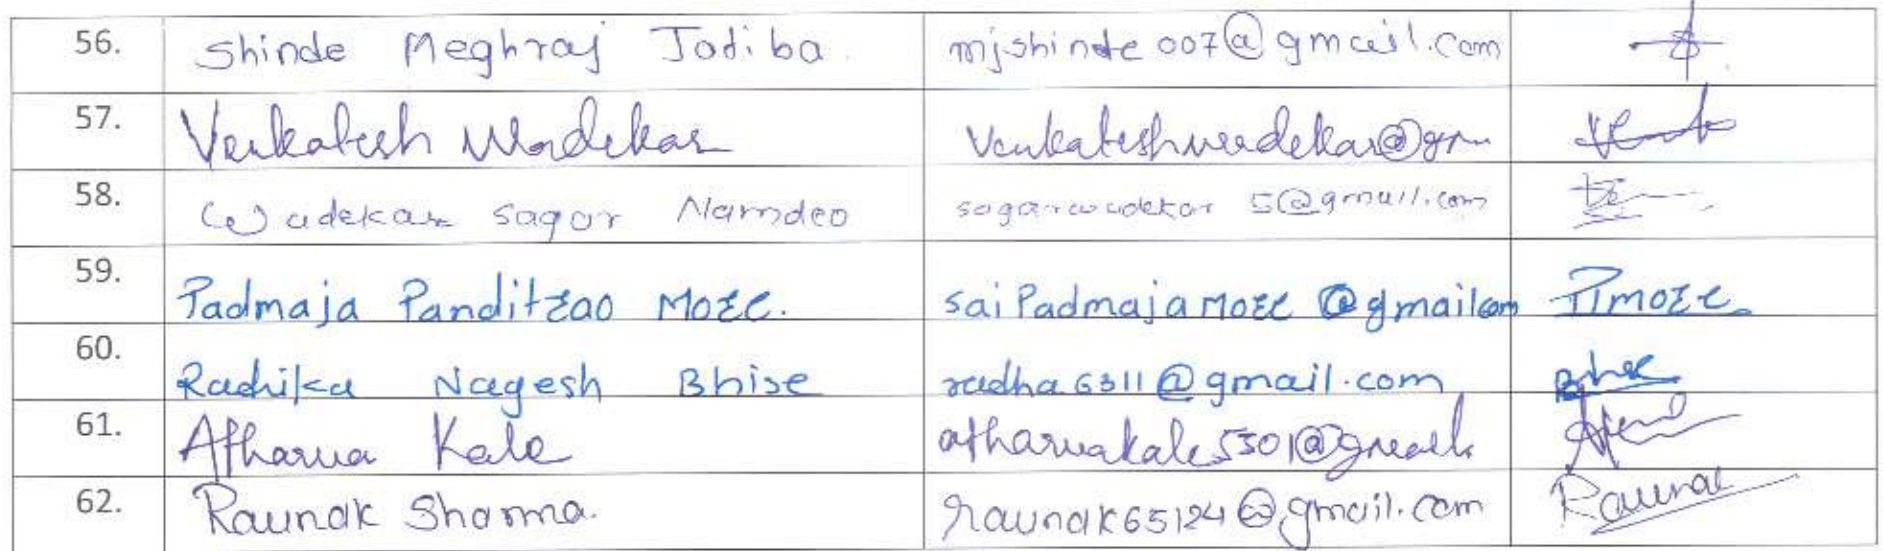 56. Shinde Meghraj Jotiba. mjshinde007@gmail.com
57. Venkatesh Wadekar Venkateshwadekar@gm
58. Wadekar sagar Namdeo sagarwadekar5@gmail.com
59. Padmaja Panditrao More. saiPadmajaMore@gmailcom PPmore
60. Radhika Nagesh Bhise radha6311@gmail.com Bhise
61. Atharva Kale atharvakale5301@gmail.
62. Raunak Sharma. raunak65124@gmail.com Raunak